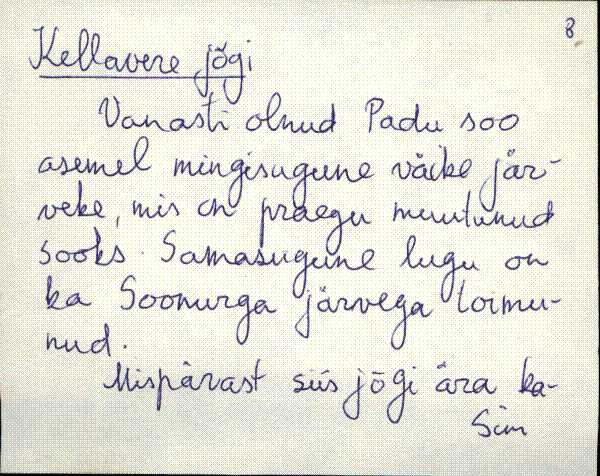 8
Kellavere jõgi
Vanasti olnud Padu soo
asemel mingisugune väike jär-
veke, mis on praegu muutunud
sooks. Samasugune lugu on
ka Soonurga järvega toimu-
nud.
Mispärast siis jõgi ära ka-